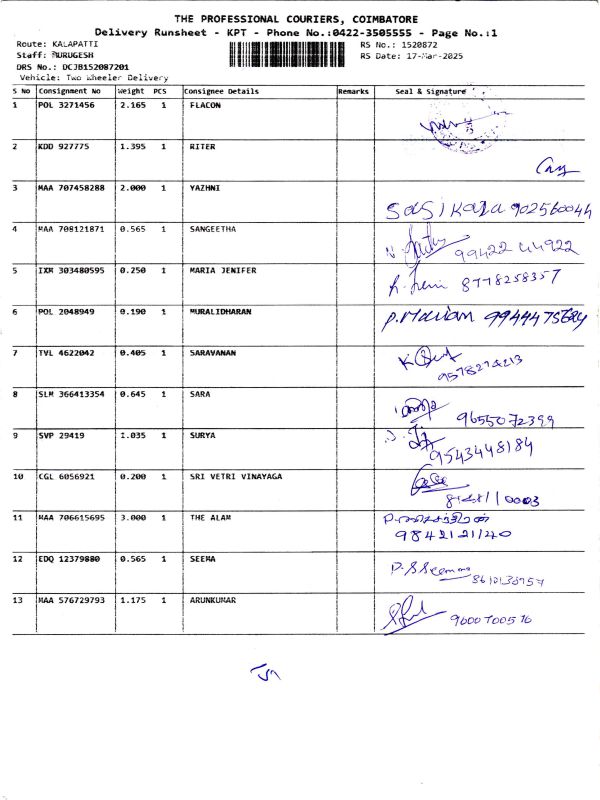 THE PROFESSIONAL COURIERS, COIMBATORE
Delivery Runsheet - KPT - Phone No.:0422-3505555 - Page No.:1
Route: KALAPATTI RS No.: 1520872
Staff: MURUGESH RS Date: 17-Mar-2025
DRS No.: DCJB152087201
Vehicle: Two Wheeler Delivery
S No Consignment No Weight PCS Consignee Details Remarks Seal & Signature
1 POL 3271456 2.165 1 FLACON
2 KDD 927775 1.395 1 RITER
3 MAA 707458288 2.000 1 YAZHNI Sasikala 902560044
4 MAA 708121871 0.565 1 SANGEETHA 99422 44922
5 IXM 303480595 0.250 1 MARIA JENIFER 8778258357
6 POL 2048949 0.190 1 MURALIDHARAN
7 TVL 4622042 0.405 1 SARAVANAN 9578274213
8 SLM 366413354 0.645 1 SARA 9655072399
9 SVP 29419 1.035 1 SURYA 9543448184
10 CGL 6056921 0.200 1 SRI VETRI VINAYAGA
11 MAA 706615695 3.000 1 THE ALAM 9842121140
12 EDQ 12379880 0.565 1 SEEMA
13 MAA 576729793 1.175 1 ARUNKUMAR 9600700516